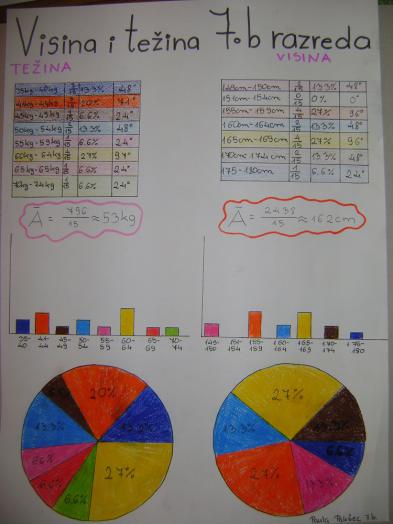 Visina i težina 7.b razreda
TEŽINA
VISINA
35kg-40kg 2/15 13.3% 48°
41kg-44kg 3/15 20% 71°
45kg-49kg 1/15 6.6% 24°
50kg-54kg 2/15 13.3% 48°
55kg-59kg 1/15 6.6% 24°
60kg-64kg 4/15 27% 97°
65kg-69kg 1/15 6.6% 24°
70kg-74kg 1/15 6.6% 24°
145cm-150cm 2/15 13.3% 48°
151cm-154cm 0/15 0% 0°
155cm-159cm 4/15 27% 96°
160cm-164cm 2/15 13.3% 48°
165cm-169cm 4/15 27% 96°
170cm-174cm 2/15 13.3% 48°
175-180cm 1/15 6.6% 24°
Ā = 796/15 ≈ 53kg
Ā = 2438/15 ≈ 162cm
35-40 41-44 45-49 50-54 55-59 60-64 65-69 70-74
145-150 151-154 155-159 160-164 165-169 170-174 175-180
6.6% 20% 13.3% 13.3% 6.6% 6.6% 6.6% 27%
27% 13.3% 13.3% 6.6% 27% 13.3%
Paula 7.b.